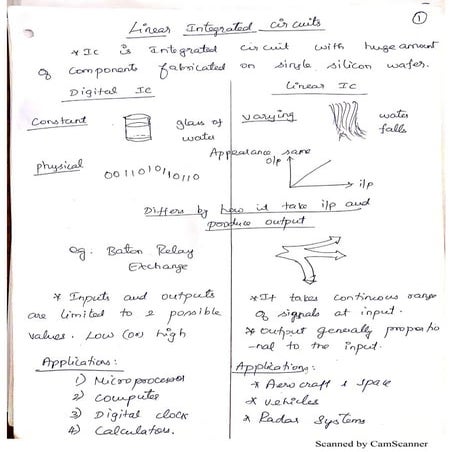 ①
Linear Integrated circuits
* Ic is integrated circuit with huge amount
of components fabricated on single silicon wafer.
Digital Ic
Constant
glass of
water
Physical
0011010110110
Linear Ic
varying
water
falls
Appearance same
o/p
i/p
Differs by how it take i/p and
produce output
eg. Baton Relay
Exchange
* Inputs and outputs
are limited to 2 possible
values. Low (or) high
Applications:
1) Microprocessor
2) Computer
3) Digital clock
4) Calculators.
* It takes continuous range
of signals at input.
* Output generally proportio
-nal to the input.
Applications:
* Aero craft & space
* vehicles
* Radar Systems
Scanned by CamScanner